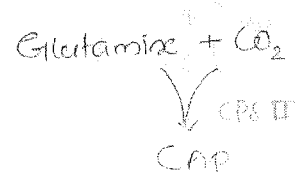 Glutamine + CO2
CPS II
CAP